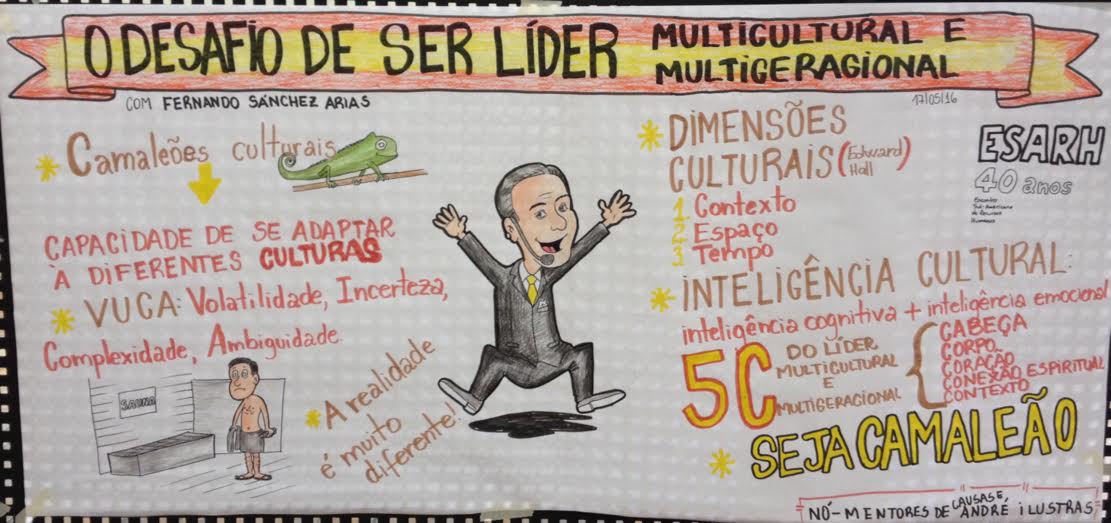 O DESAFIO DE SER LÍDER
MULTICULTURAL E
MULTIGERACIONAL
COM FERNANDO SÁNCHEZ ARIAS
17/05/16
* Camaleões culturais
CAPACIDADE DE SE ADAPTAR
À DIFERENTES CULTURAS
* VUCA: Volatilidade, Incerteza,
Complexidade, Ambiguidade.
SAUNA
* A realidade
é muito
diferente!
* DIMENSÕES
CULTURAIS (Edward
Hall)
1 Contexto
2 Espaço
3 Tempo
ESARH
40 anos
Encontro
Sul-Americano
de Recursos
Humanos
* INTELIGÊNCIA CULTURAL:
inteligência cognitiva + inteligência emocional
5C
DO LÍDER
MULTICULTURAL
E
MULTIGERACIONAL
CABEÇA
CORPO
CORAÇÃO
CONEXÃO ESPIRITUAL
CONTEXTO
* SEJA CAMALEÃO
NÓ-MENTORES DE CAUSAS E, ANDRÉ ILUSTRAS